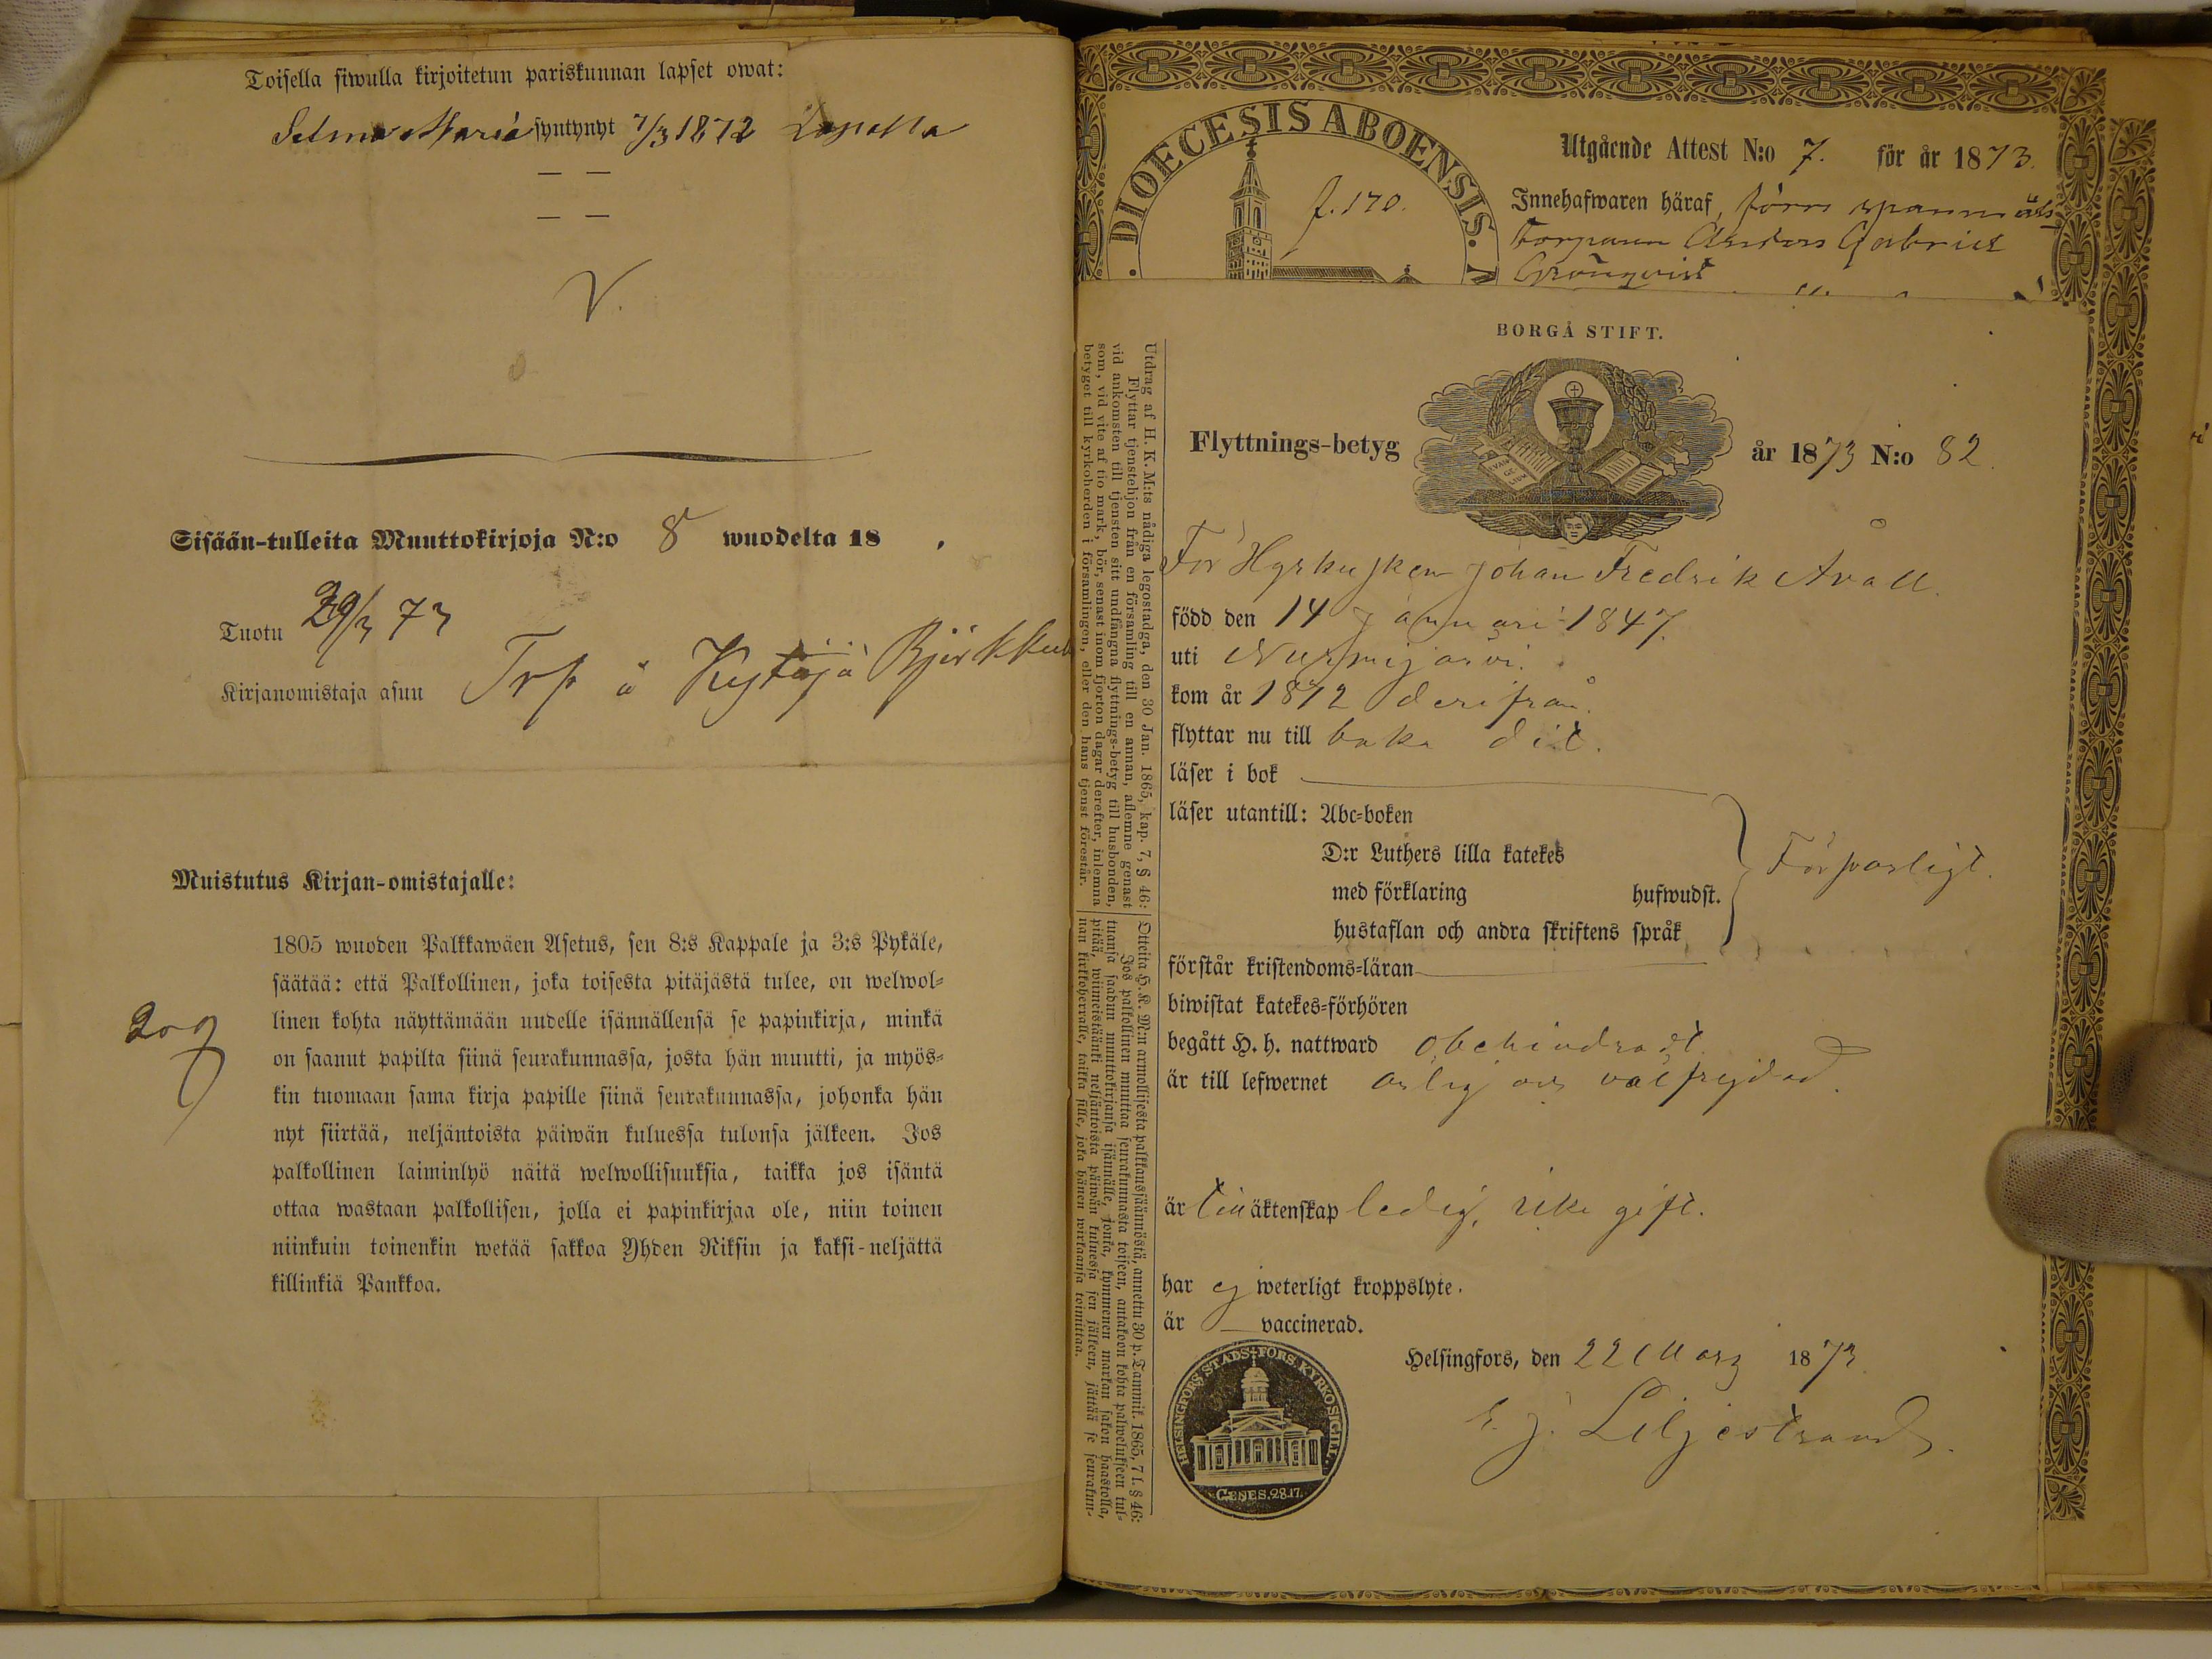 Toisella siwulla kirjoitetun pariskunnan lapset owat:
Selma Maria syntynyt 7/3 1872 Lopella
— —
— —
V.
Sisään-tulleita Muuttokirjoja N:o 8 wuodelta 18 .
Tuotu 29/3 73
Kirjanomistaja asuu Trp å Kytäjä Björkkul
Muistutus Kirjan-omistajalle:
1805 wuoden Palkkawäen Asetus, sen 8:s Kappale ja 3:s Pykäle,
säätää: että Palkollinen, joka toisesta pitäjästä tulee, on welwol-
linen kohta näyttämään uudelle isännällensä se papinkirja, minkä
on saanut papilta siinä seurakunnassa, josta hän muutti, ja myös-
kin tuomaan sama kirja papille siinä seurakunnassa, johonka hän
nyt siirtää, neljäntoista päiwän kuluessa tulonsa jälkeen. Jos
palkollinen laiminlyö näitä welwollisuuksia, taikka jos isäntä
ottaa wastaan palkollisen, jolla ei papinkirjaa ole, niin toinen
niinkuin toinenkin wetää sakkoa Yhden Riksin ja kaksi-neljättä
killinkiä Pankkoa.
209
DIOECESIS ABOENSIS.
f. 170.
Utgående Attest N:o 7. för år 1873.
Innehafwaren häraf, förre spannmåls
torparen Anders Gabriel
Grönqvist
BORGÅ STIFT.
EVAN
GE
LIUM
Flyttnings-betyg år 1873 N:o 82.
Utdrag af H. K. M:ts nådiga legostadga, den 30 Jan. 1865, kap. 7, § 46:
Flyttar tjenstehjon från en församling till en annan, aflemne genast
vid ankomsten till tjensten sitt undfångna flyttnings-betyg till husbonden,
som, vid vite af tio mark, bör, senast inom fjorton dagar derefter, inlemna
betyget till kyrkoherden i församlingen, eller den hans tjenst förestår.
Otteita H. K. M:n armollisesta palkkaussäännöstä, annettu 30 p. Tammik. 1865, 7 l. § 46:
Jos palkollinen muuttaa seurakunnasta toiseen, antakoon kohta palwelukseen tul-
tuansa saadun muuttokirjansa isännälle, jonka, kymmenen markan sakon haastolla,
pitää, wiimeistäänki neljäntoista päiwän kuluessa sen jälkeen, jättää se seurakun-
nan kirkkoherralle, taikka sille, joka hänen wirkaansa toimittaa.
För Hyrkusken Johan Fredrik Åvall.
född den 14 Januari 1847.
uti Nurmijärvi.
kom år 1872 derifrån.
flyttar nu till baka dit.
läser i bok
läser utantill: Abc-boken
D:r Luthers lilla katekes
med förklaring hufwudst.
hustaflan och andra skriftens språk
Försvarligt.
förstår kristendoms-läran
biwistat katekes-förhören
begått H. h. nattward obehindradt
är till lefwernet ärlig och välfrejdad.
är till äktenskap ledig, icke gift.
har ej weterligt kroppslyte.
är — vaccinerad.
Helsingfors, den 22 Mars 1873.
Liljestrand.
HELSINGFORS STADS FÖRS. KYRKOSIGILL.
GENES. 28.17.